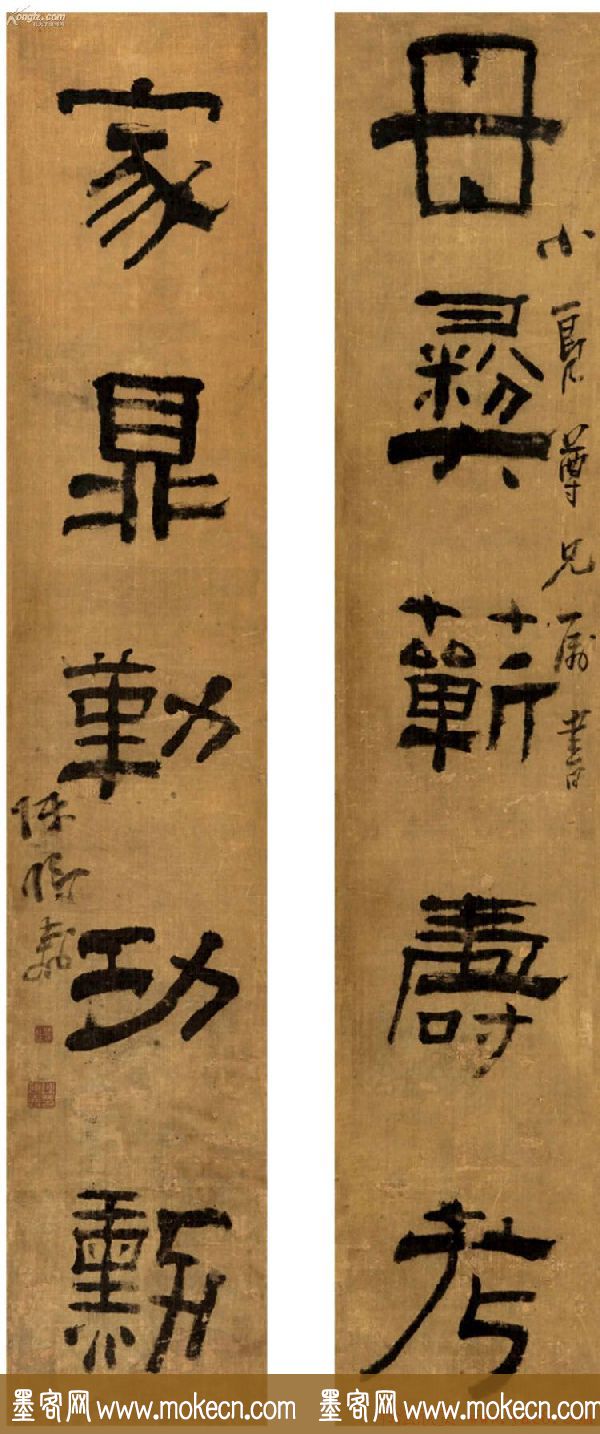 母彝蘄壽考
小 尊兄屬書
家鼎勤功勳
陳鴻壽
墨客网 www.mokecn.com 墨客网 www.mokecn.com